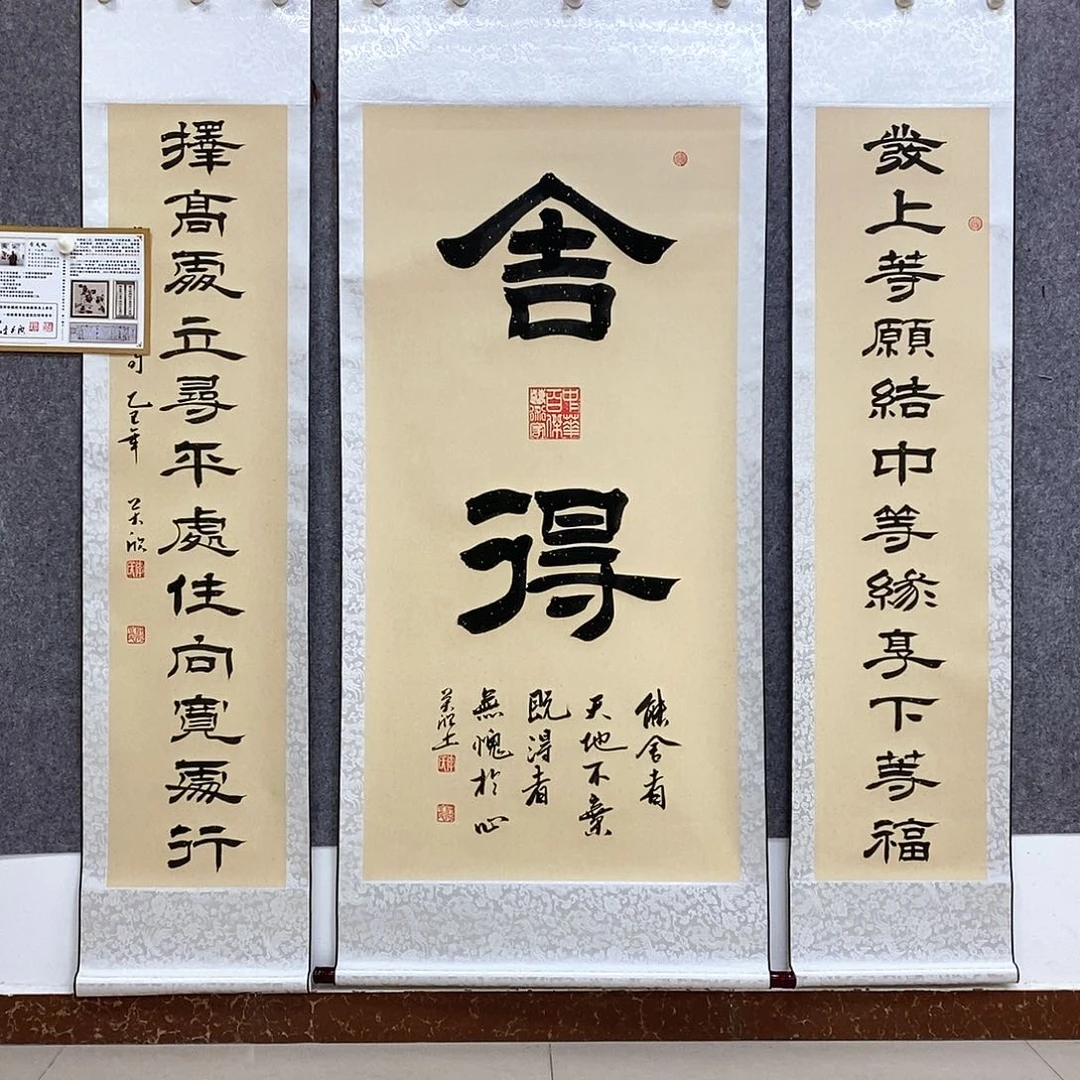 發上等願結中等緣享下等福
舍得
中華
百傑
能舍者
天地不棄
既得者
無愧於心
擇高處立尋平處住向寬處行
句 乙巳年